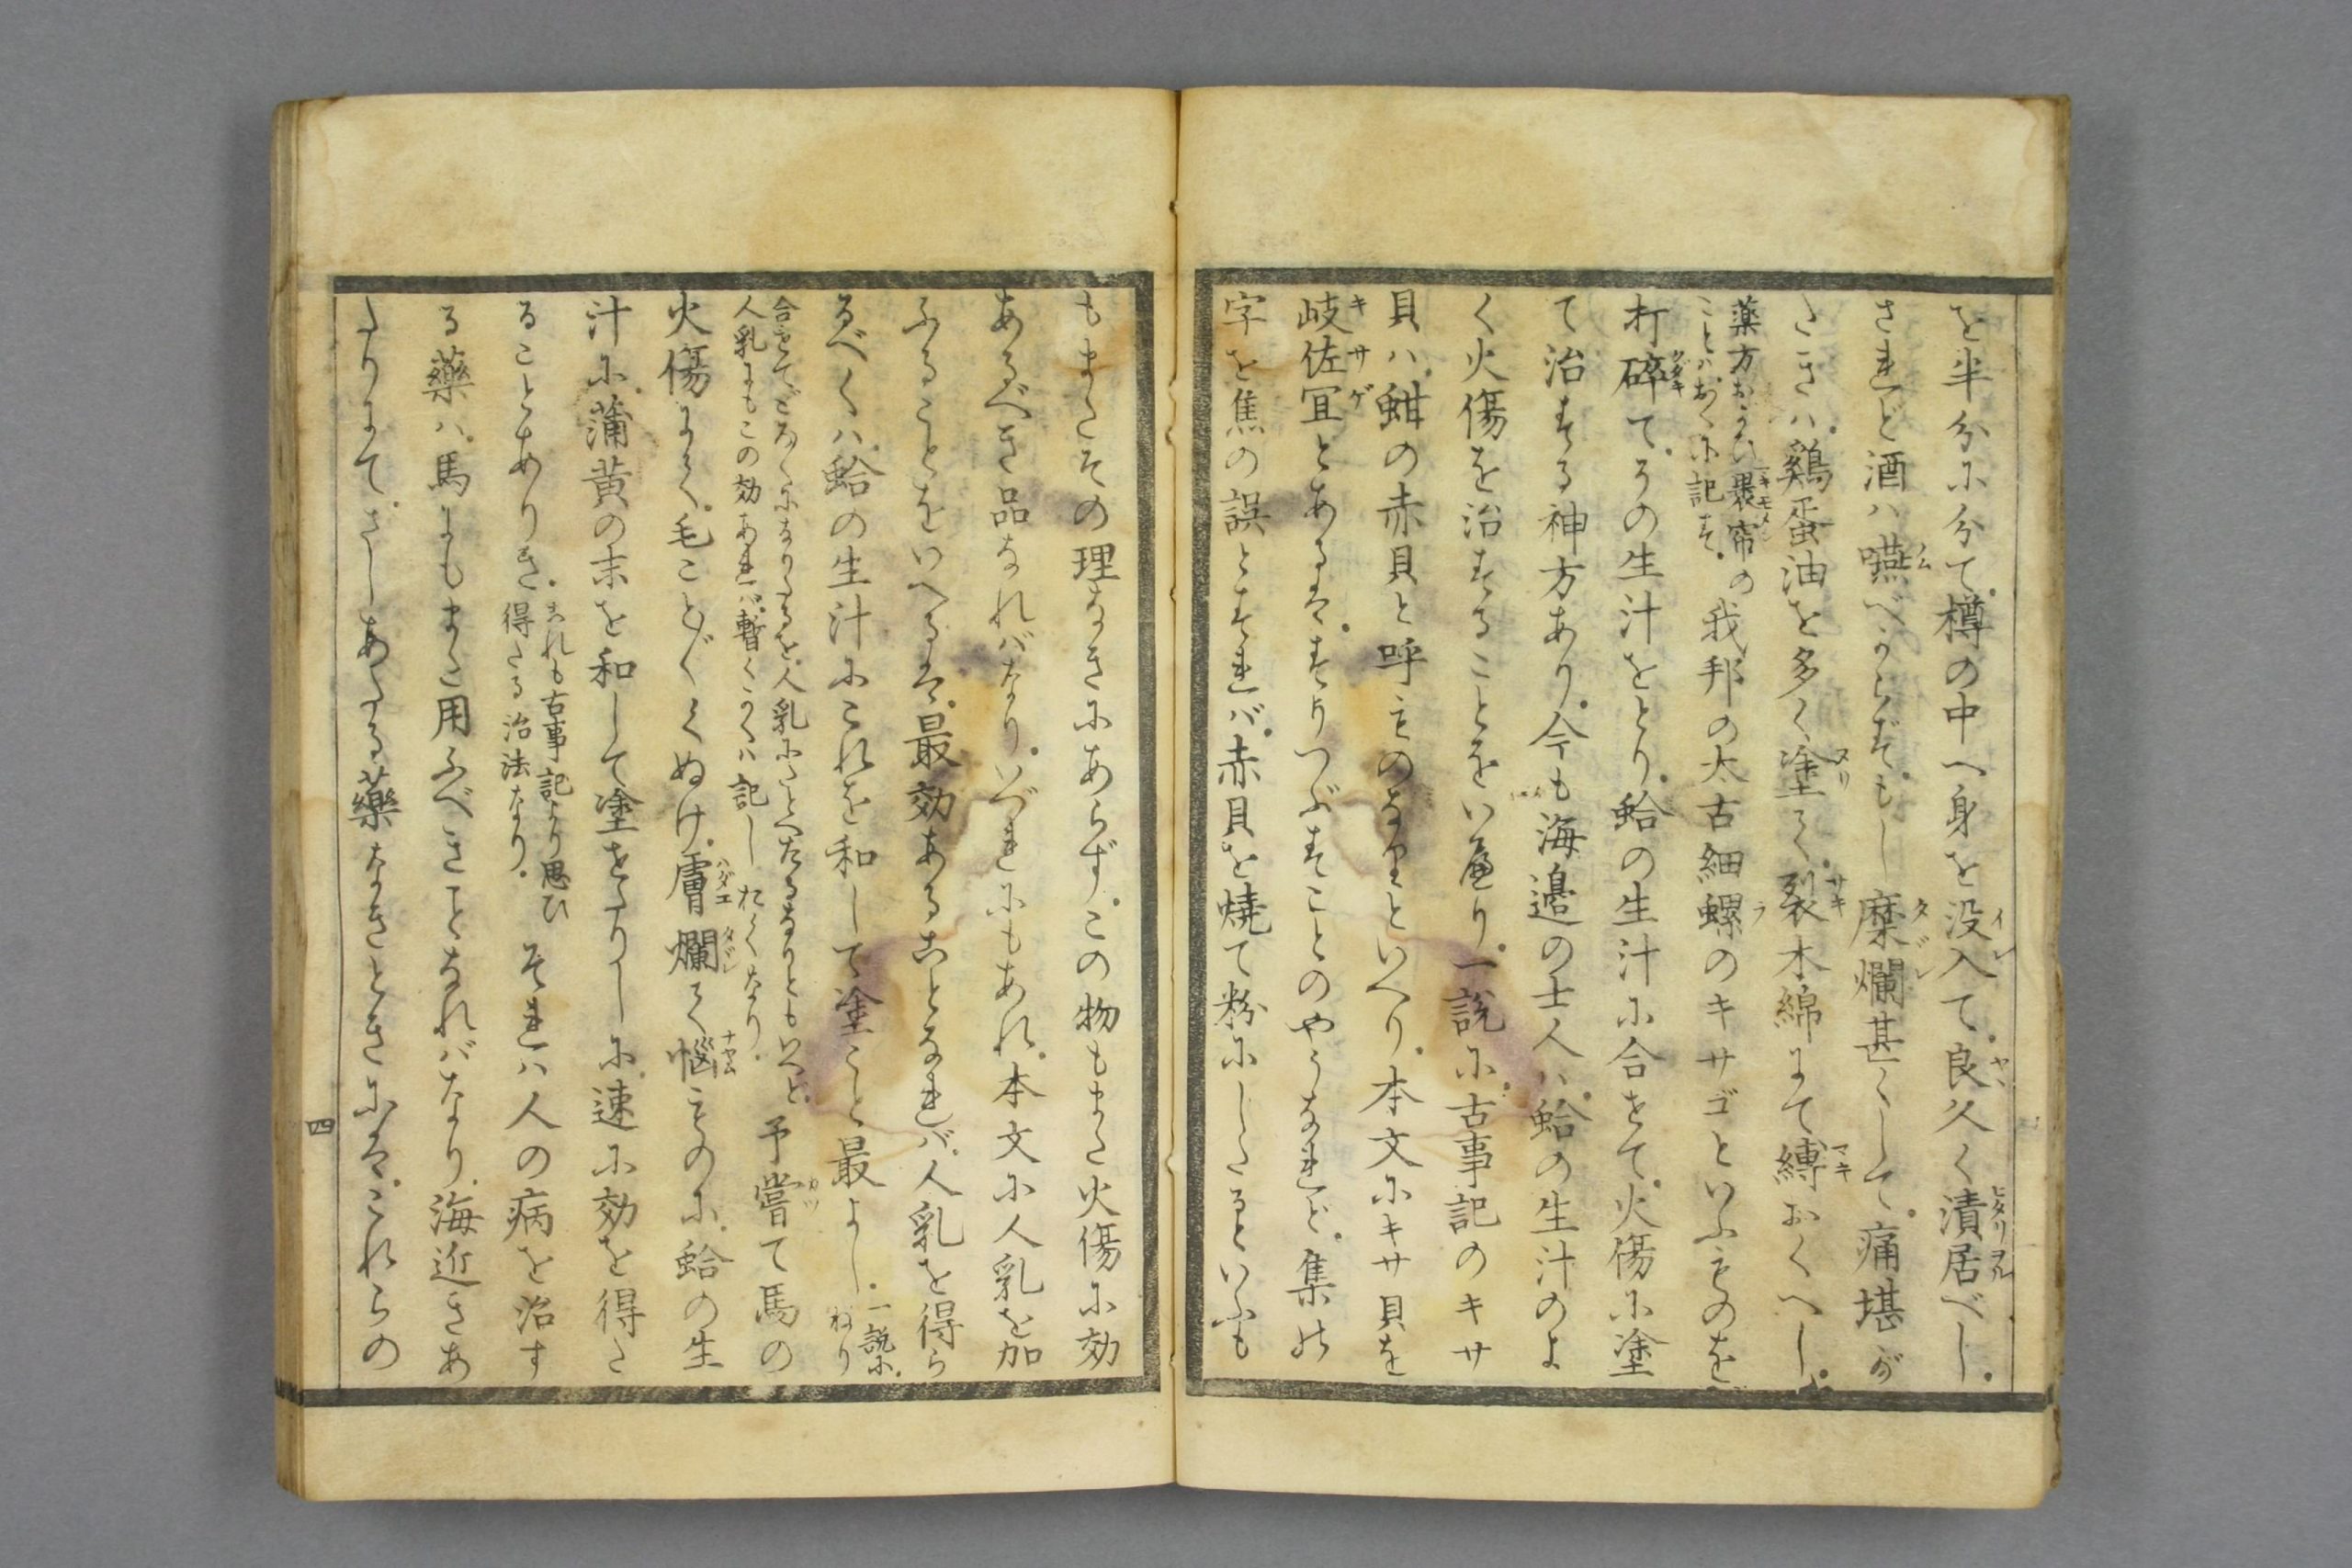 を半分に分て。樽の中へ身を没入て。良久く漬居べし。
されど酒ハ嚥べからず。もし糜爛甚くして。痛堪が
たきハ。鷄蛋油を多く塗て。裂木綿にて縛おくべし。
薬方および裹帘の
ことハおくに記す。
我邦の太古細螺のキサゴといふものを
打碎て。その生汁をとり。蛤の生汁に合せて。火傷に塗
て治する神方あり。今も海邉の土人ハ。蛤の生汁のよ
く火傷を治することをいへり。一説に。古事記のキサ
貝ハ。蚶の赤貝と呼ものなりといへり。本文にキサ貝を
岐佐冝とあるハ。すりつぶすことのやうなれど。集の
字を焦の誤とすれバ。赤貝を燒て粉にしたるといふも
もまたその理なきにあらず。この物もまた火傷に効
あるべき品なれバなり。いづれにもあれ。本文に人乳を加
ふることをいへるハ。最効あることなれバ。人乳を得ら
るべくハ。蛤の生汁にこれを和して塗こと最よし。
一説に。ねり
合せてどろ〱になりたるを。人乳にたとへたるなりともいへど。
人乳にもこの効あれバ。暫くかくハ記しおくなり。
予嘗て馬の
火傷にて。毛こと〲くぬけ。膚爛て悩ものに。蛤の生
汁に。蒲黄の末を和して塗せたりしに。速に効を得た
ることありき。
これも古事記より思ひ
得たる治法なり。
それハ人の病を治す
る藥ハ。馬にもまた用ふべきことなればなり。海近きあ
たりにて。さしあたる藥なきときにハ。これらの
四